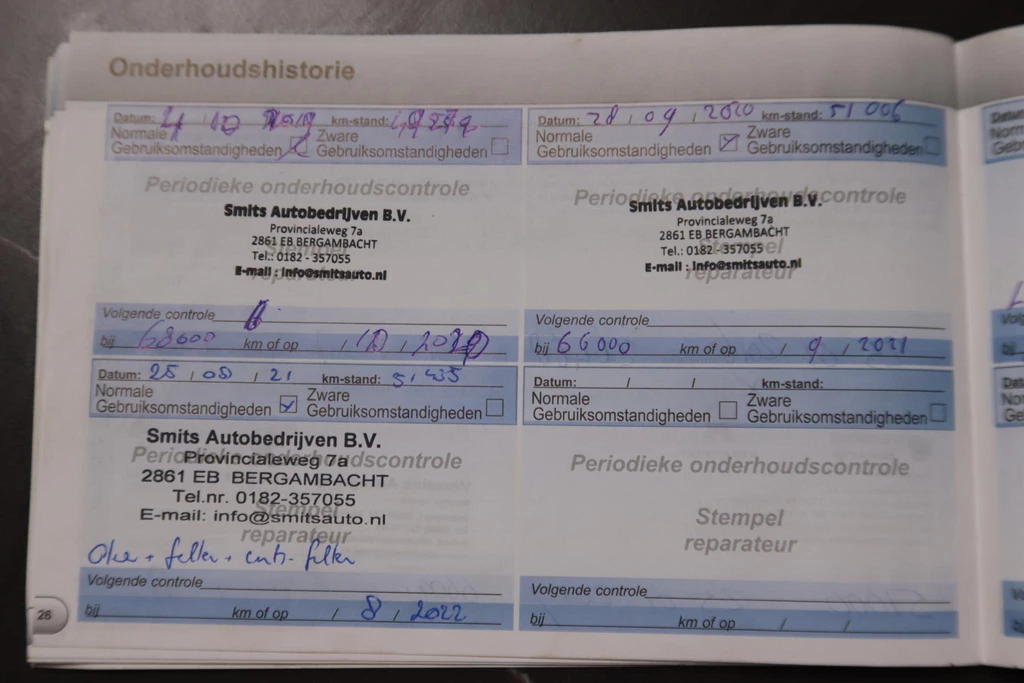 Onderhoudshistorie
Datum: 4 / 10 / 2019 km-stand:
Normale Zware
Gebruiksomstandigheden Gebruiksomstandigheden
Periodieke onderhoudscontrole
Smits Autobedrijven B.V.
Provincialeweg 7a
2861 EB BERGAMBACHT
Tel.: 0182 - 357055
Stempel
E-mail : info@smitsauto.nl
reparateur
Volgende controle
bij 68000 km of op / 10 /
Datum: 28 / 09 / 2020 km-stand: 51 006
Normale Zware
Gebruiksomstandigheden Gebruiksomstandigheden
Periodieke onderhoudscontrole
Smits Autobedrijven B.V.
Provincialeweg 7a
2861 EB BERGAMBACHT
Stempel
Tel.: 0182 - 357055
E-mail : info@smitsauto.nl
reparateur
Volgende controle
bij 66000 km of op / 9 / 2021
Datum: 25 / 08 / 21 km-stand:
Normale Zware
Gebruiksomstandigheden Gebruiksomstandigheden
Smits Autobedrijven B.V.
Periodieke onderhoudscontrole
Provincialeweg 7a
2861 EB BERGAMBACHT
Tel.nr. 0182-357055
Stempel
E-mail: info@smitsauto.nl
reparateur
Olie + filter + filter
Volgende controle
bij km of op / 8 / 2022
Datum: / / km-stand:
Normale Zware
Gebruiksomstandigheden Gebruiksomstandigheden
Periodieke onderhoudscontrole
Stempel
reparateur
Volgende controle
bij km of op / /
26